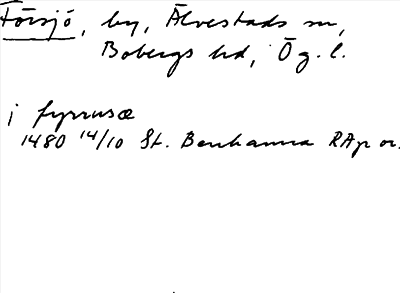 Försjö, by, Älvestads sn,
Bobergs hd, Ög. l.
i fyrrusæ
1480 14/10 St. Benhamra RAp or.